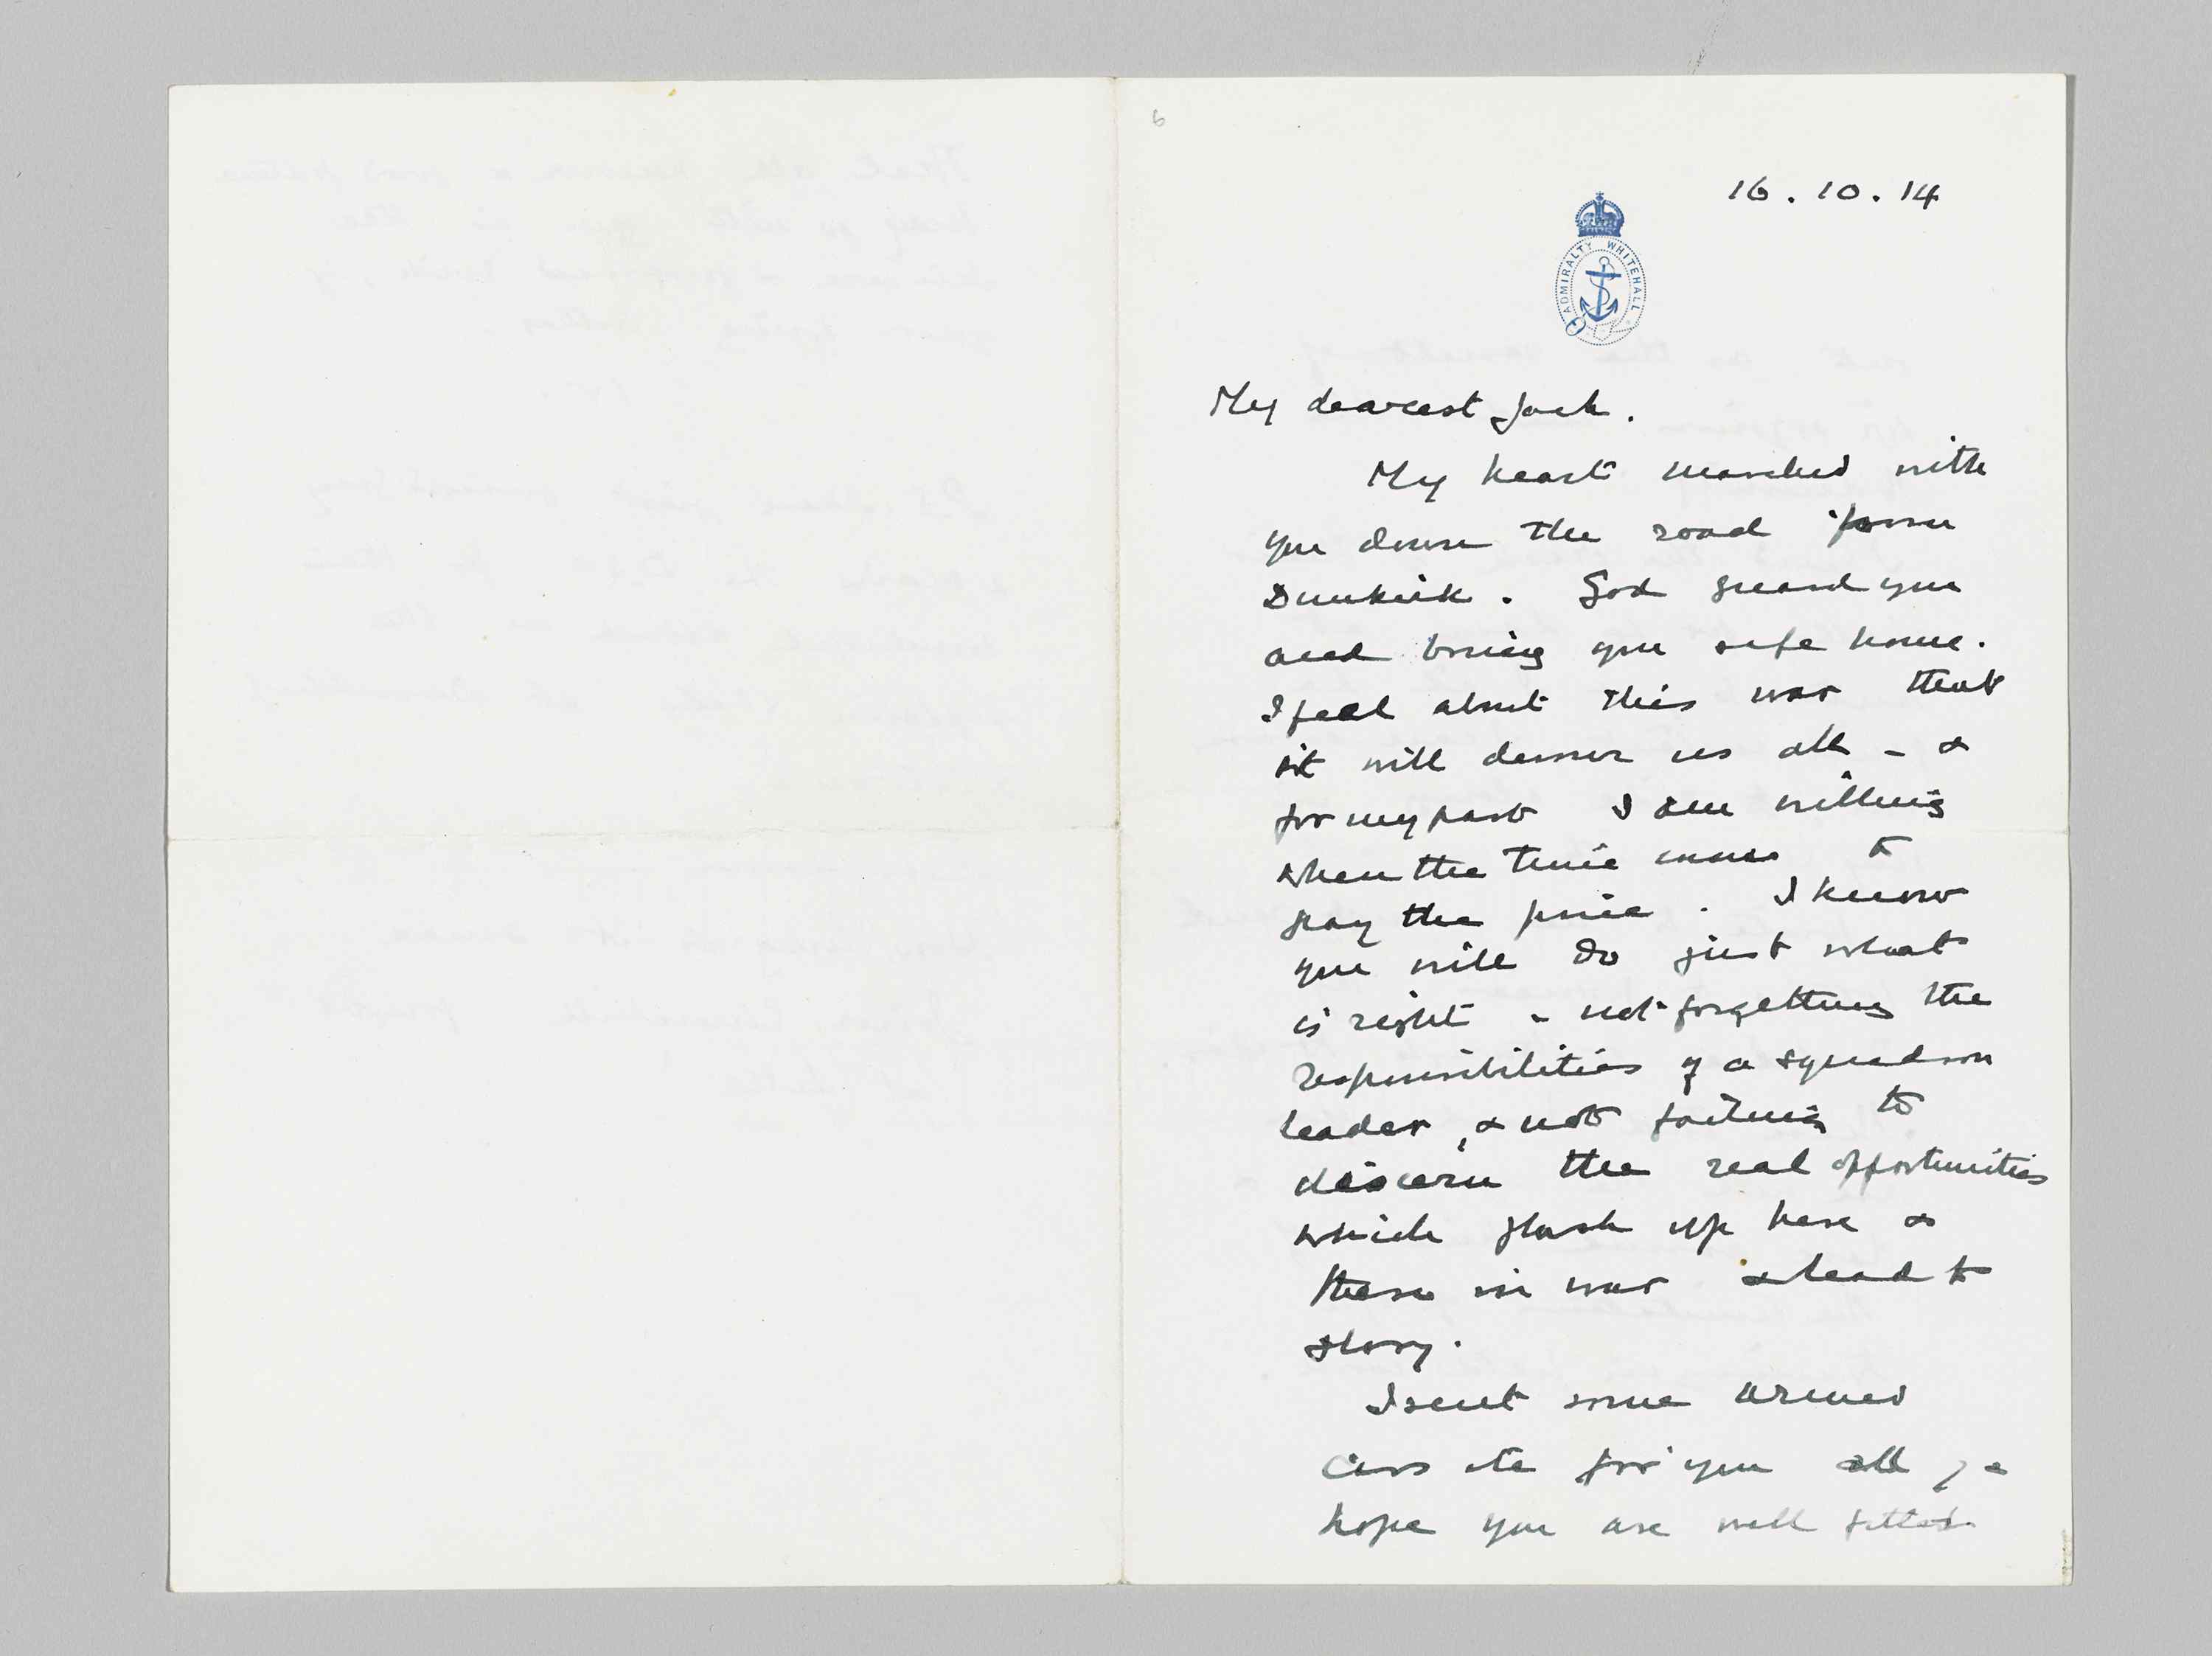 6
16.10.14
ADMIRALTY WHITEHALL
My dearest Jack.
My heart marched with
you down the road from
Dunkirk. God guard you
and bring you safe home.
I feel about this war that
it will devour us all - &
for my part I am willing
when the time comes to
pay the price. I know
you will do just what
is right - not forgetting the
responsibilities of a squadron
leader, & not failing to
discern the real opportunities
which flash up here &
there in war & lead to
glory.
I sent some armed
cars etc for you all, &
hope you are well fitted